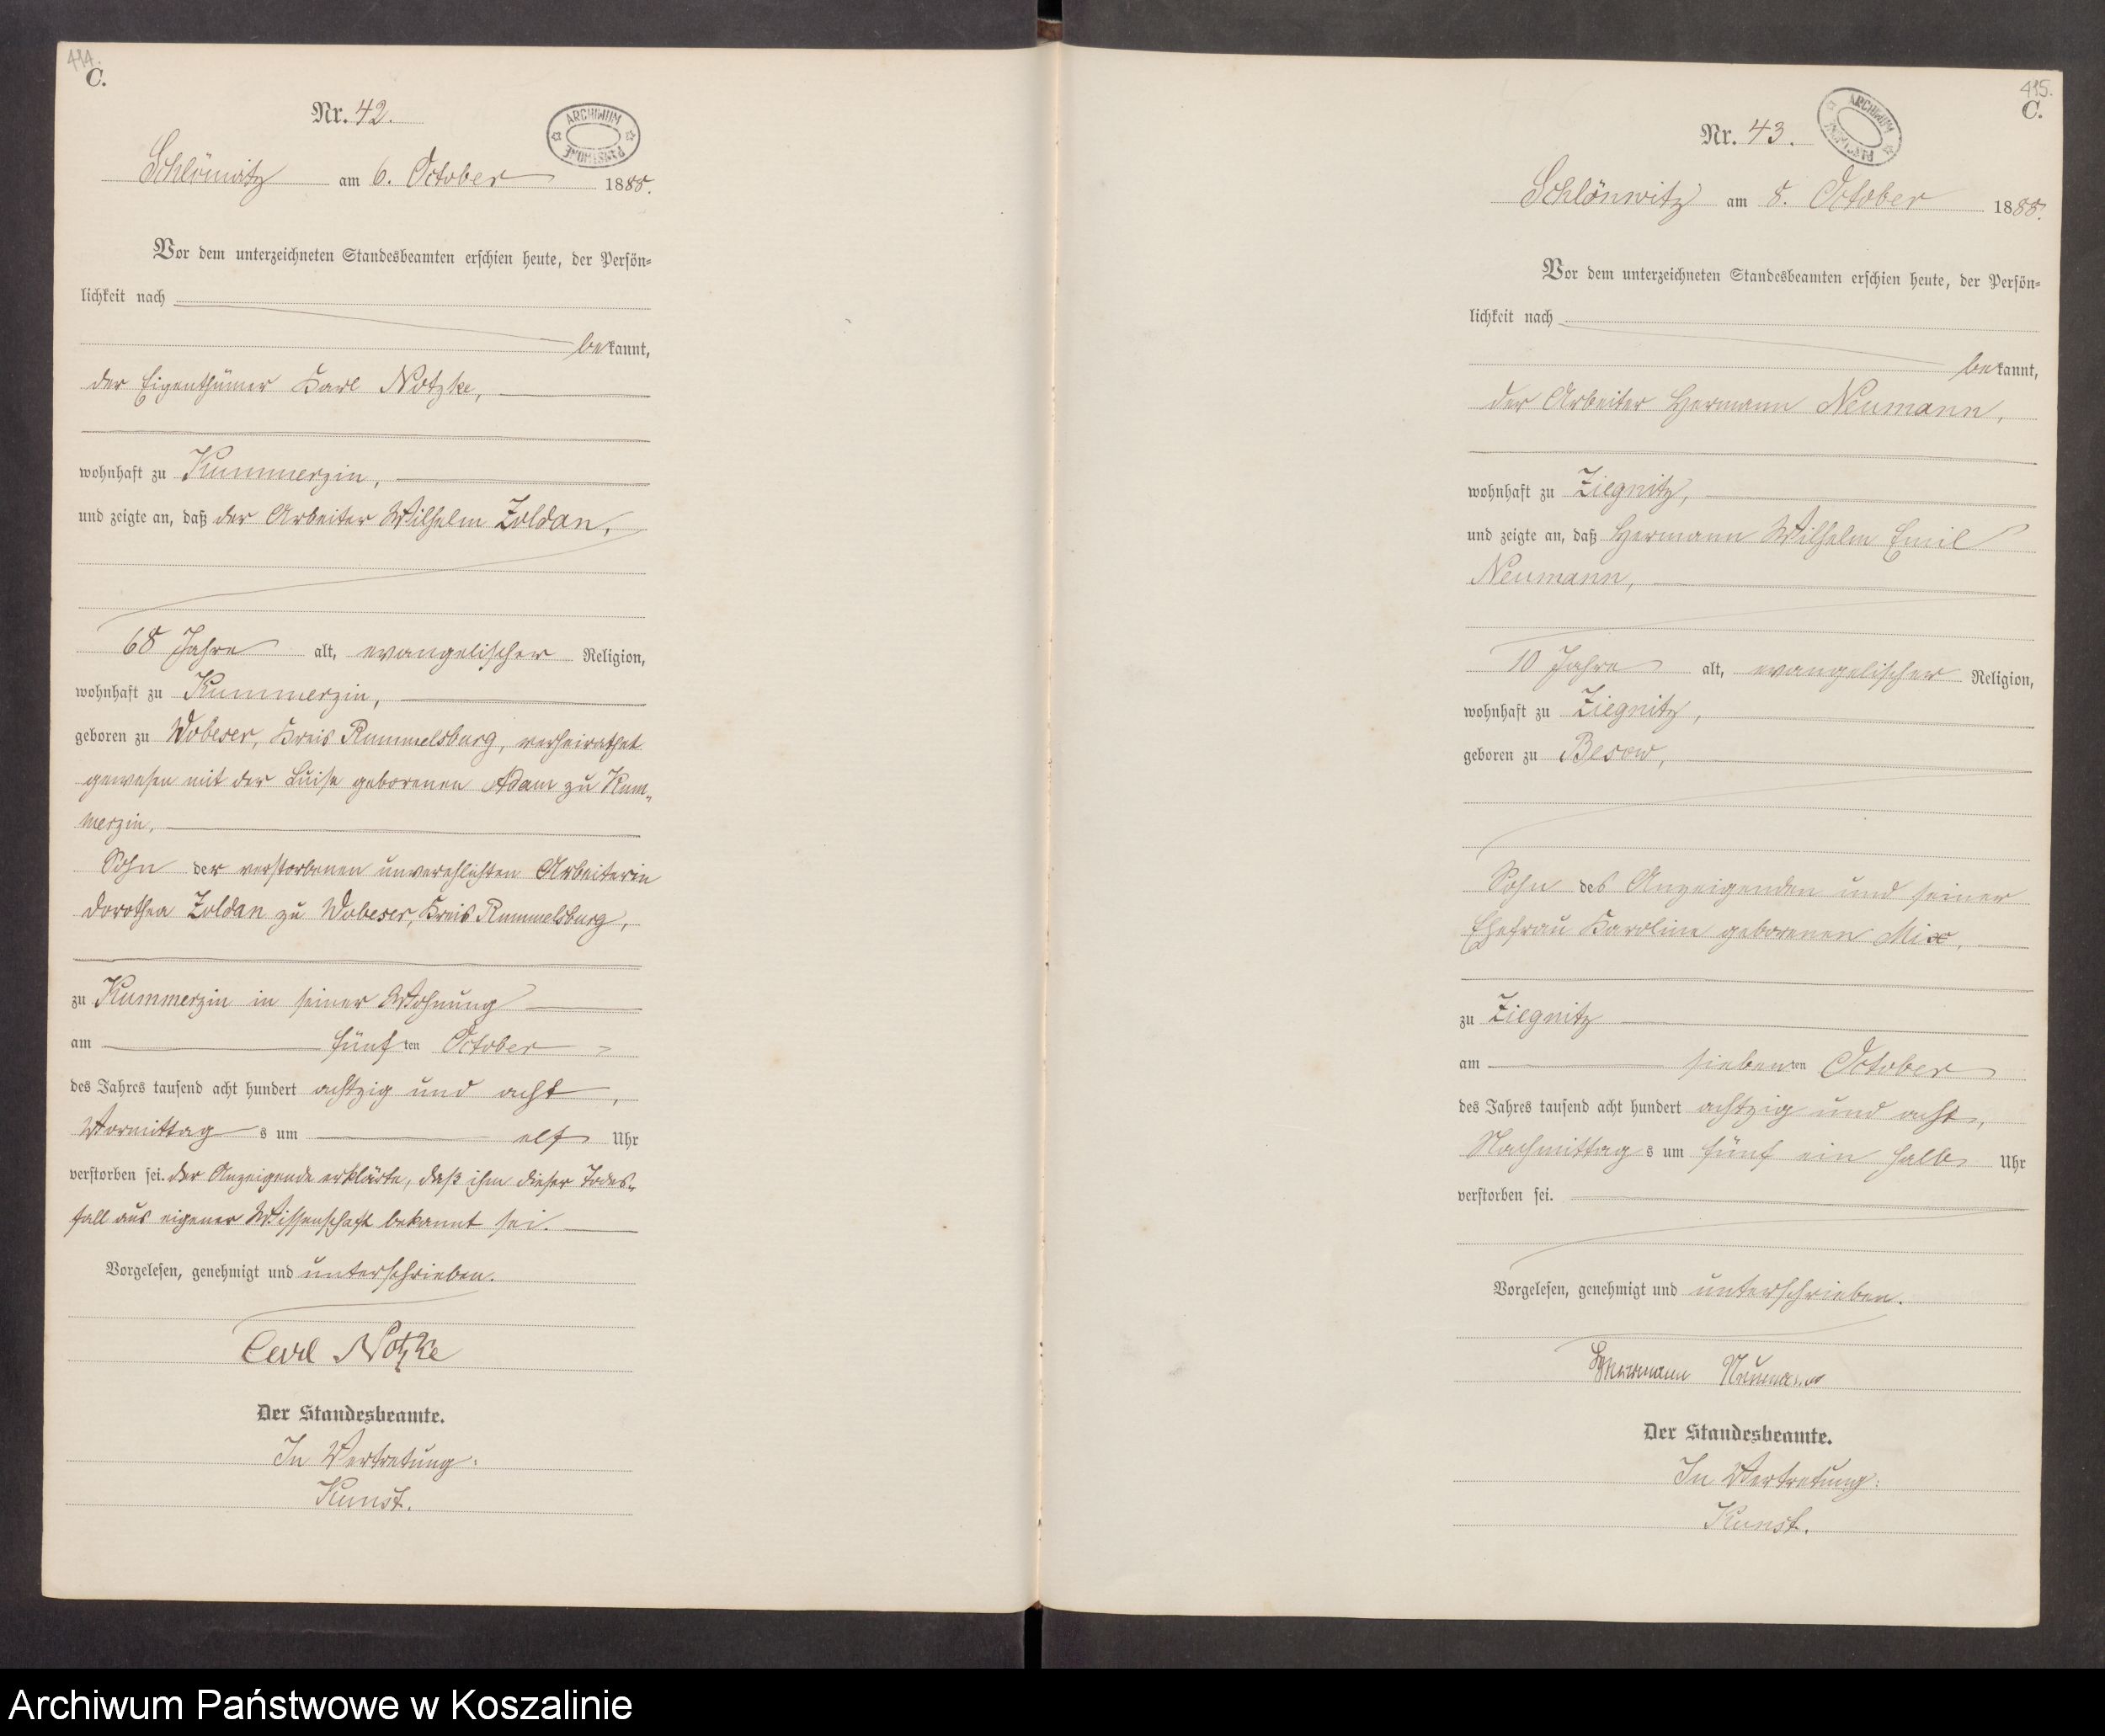 414.
C.
Nr. 42.
ARCHIWUM PAŃSTWOWE
Schlönwitz am 6. October 1888.
Vor dem unterzeichneten Standesbeamten erschien heute, der Persön=
lichkeit nach
bekannt,
der Eigenthümer Karl Notzke,
wohnhaft zu Kummerzin,
und zeigte an, daß der Arbeiter Wilhelm Zoldan,
68 Jahre alt, evangelischer Religion,
wohnhaft zu Kummerzin,
geboren zu Wobeser, Kreis Rummelsburg, verheirathet
gewesen mit der Luise geborenen Adam zu Kum„
merzin,
Sohn der verstorbenen unverehlichten Arbeiterin
Dorothea Zoldan zu Wobeser, Kreis Rummelsburg,
zu Kummerzin in seiner Wohnung
am fünften October
des Jahres tausend acht hundert achtzig und acht,
Vormittags um elf Uhr
verstorben sei. Der Anzeigende erklärte, daß ihm dieser Todes„
fall aus eigener Wissenschaft bekannt sei.
Vorgelesen, genehmigt und unterschrieben.
Carl Notzke
Der Standesbeamte.
In Vertretung:
Kunst.
415.
C.
Nr. 43.
ARCHIWUM PAŃSTWOWE
Schlönwitz am 8. October 1888.
Vor dem unterzeichneten Standesbeamten erschien heute, der Persön=
lichkeit nach
bekannt,
der Arbeiter Hermann Neumann,
wohnhaft zu Ziegnitz,
und zeigte an, daß Hermann Wilhelm Emil
Neumann,
10 Jahre alt, evangelischer Religion,
wohnhaft zu Ziegnitz,
geboren zu Besow,
Sohn des Anzeigenden und seiner
Ehefrau Karoline geborenen Mix,
zu Ziegnitz
am siebenten October
des Jahres tausend acht hundert achtzig und acht,
Nachmittags um fünf ein halb Uhr
verstorben sei.
Vorgelesen, genehmigt und unterschrieben.
Hermann Neumann
Der Standesbeamte.
In Vertretung:
Kunst.
Archiwum Państwowe w Koszalinie